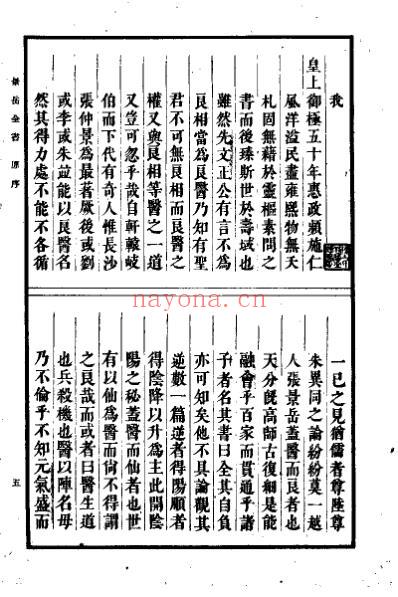 我
皇上御極五十年惠政頻施仁
風洋溢民盡雍熙物無夭
札固無藉於靈樞素問之
書而後臻斯世於壽域也
雖然先文正公有言不爲
良相當爲良醫乃知有聖
君不可無良相而良醫之
權又與良相等醫之一道
又豈可忽乎哉自軒轅岐
伯而下代有奇人惟長沙
張仲景爲最著厥後或劉
或李或朱並能以良醫名
然其得力處不能不各循
一己之見猶儒者尊陸尊
朱異同之論紛紛莫一越
人張景岳蓋醫而良者也
天分旣高師古復細是能
融會乎百家而貫通乎諸
子者名其書曰全其自負
亦可知矣他不具論觀其
逆數一篇逆者得陽順者
得陰降以升爲主此開陰
陽之秘蓋醫而仙者也世
有以仙爲醫而尚不得謂
之良哉而或者曰醫生道
也兵殺機也醫以陣名毋
乃不倫乎不知元氣盛而
景岳全書 原序
五
nayona.cn